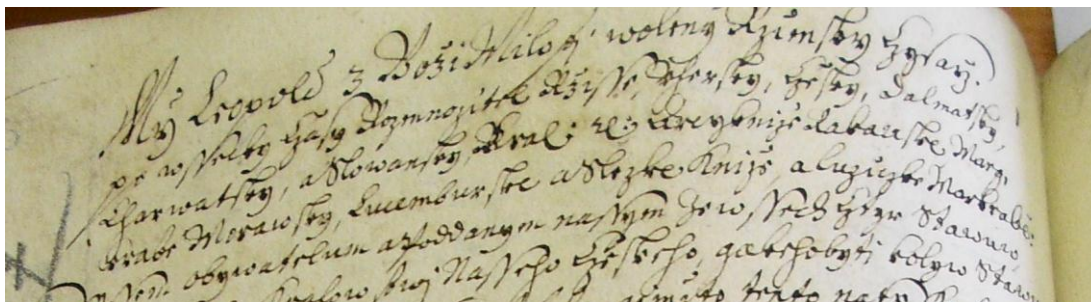 My Leopold z Boži Milosti woleny Ržimsky Cysarž.
po wssecky Czasy Rozmnožitel Ržisse, Vhersky, Czesky, Dalmatsky,
Charwatsky, a Slowansky, Kral: &c: Arcykniže Rakauske Margr
krabě Morawsky, Lucemburske a Slezke Kniže, a Lužyczke Markrabě.
Wssem obywatelum a Poddanym nassym ze wssech Cztyr Stawuw
Kralowstwj Nasseho Czeskeho, gakehobyti kolyw Stawu
tento